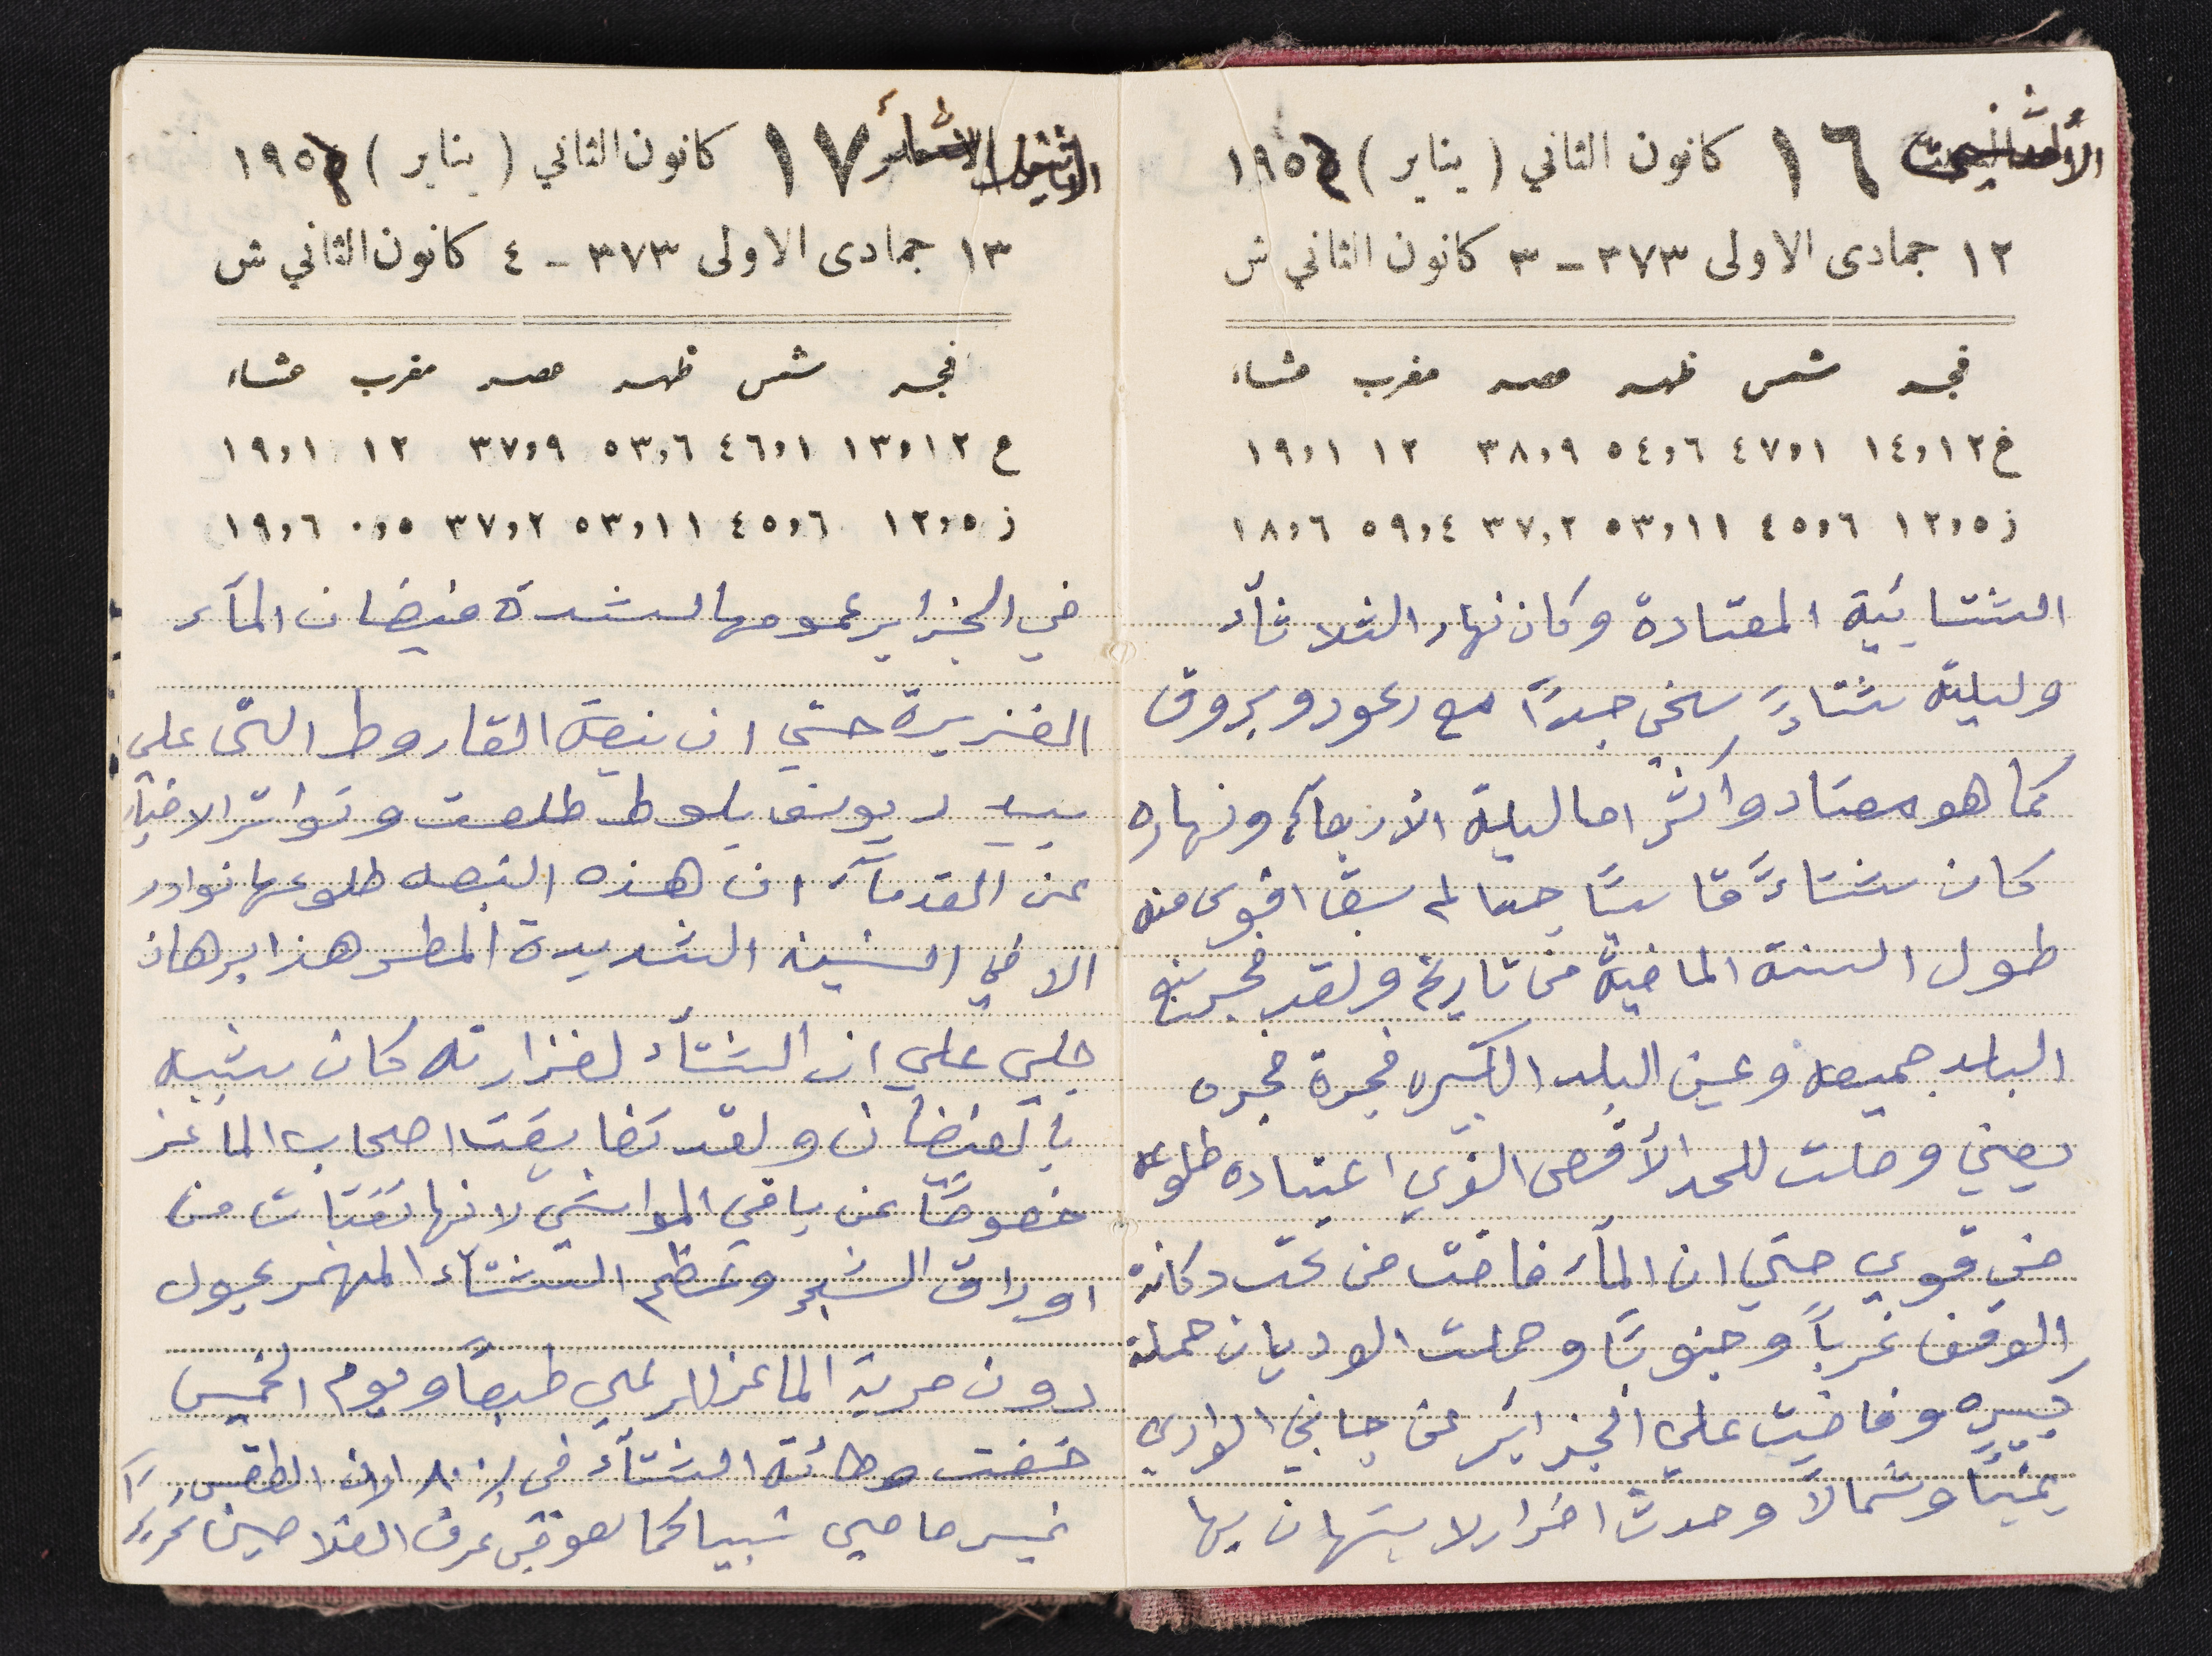 ١٦ كانون الثاني ( يناير ) ١٩٥
١٢ جمادى الاولى ٣٧٣ - ٣ كانون الثاني ش
فجر شمس ظهر عصر مغرب عشاء
غ ١٤,١٢ ٤٧,١ ٥٤,٦ ٣٨,٩ ١٢ ١٩,١
ز ١٢,٥ ٤٥,٦ ٥٣,١١ ٣٧,٢ ٥٩,٤ ١٨,٦
الشتائية المعتادة وكان نهار الثلاثآء
وليلة شتاءً سخي جداً مع رعود وبروق
كما هو معتاد واكثر اما ليلة الأربعآء ونهاره
كان شتاءً قاسيًا جدا لم سبقا اقوى منه
طول السنة الماضية من تاريخ ولقد فجر نبع
البلد جميعه وعين البلد الكبيره فجرة فجره
يعني وصلت للحد الأقصى الذي اعتياده طلوعه
من قوي حتي ان المآء فاضت من تحت دكانة
الوقف غرباً وجنوبًا وحملت الوديان حملة
كبيره وفاضت علي الجزاير عن جانبي الوادي
يمينًا وشمالاً وحدث اضرار لا يستهان بها
١٧ كانون الثاني ( يناير ) ١٩٥
١٣ جمادى الاولى ٣٧٣ - ٤ كانون الثاني ش
فجر شمس ظهر عصر مغرب عشاء
ع ١٣,١٢ ٤٦,١ ٥٣,٦ ٣٧,٩ ١٢ ١٩,١
ز ١٢,٥ ٤٥,٦ ٥٣,١١ ٣٧,٢ ٠,٥ ١٩,٦
في الجزاير عمومها لشدة فيضان المآء
الغزيرة حتي ان نبعة القاروط التي على
بيدر يوسف بلوط طلعت وتواتر الاخبار
عن القدمآء ان هذه النبعه طلوعها نوادر
الا في السنين الشديدة المطر هذا برهان
جلي علي ان الشتآء لغزارته كان شبيه
بالفيضان ولقد تضايقت اصحاب الماعز
خصوصًا عن باقي المواشي لانها تقتات من
اوراق الشجر وعظم الشتآء المنهمر يحول
دون حرية الماعز للرعي طبعاً ويوم الخميس
خفت وطائة الشتآء في ٨٠٪ لان الطقس
غير ماحي شبيا كما هو في عرف الفلاحين